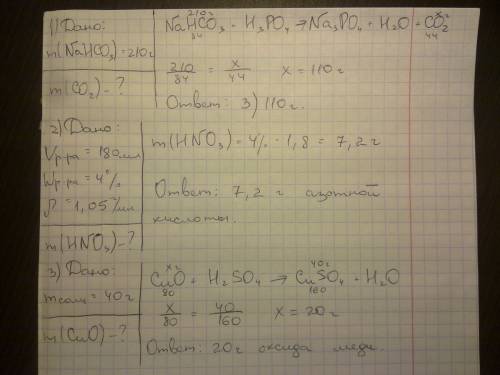 1) Дано:
m(NaHCO₃) = 210г
m(CO₂) - ?
210г xг
NaHCO₃ + H₃PO₄ → Na₃PO₄ + H₂O + CO₂
84 44
210/84 = x/44 x = 110г
Ответ: 3) 110г.
2) Дано:
Vр-ра = 180мл
Wр-ра = 4%
ρ = 1,05г/мл
m(HNO₃) - ?
m(HNO₃) = 4% · 1,8 = 7,2г
Ответ: 7,2 г азотной
кислоты.
3) Дано:
mсоли = 40г
m(CuO) - ?
xг 40г
CuO + H₂SO₄ → CuSO₄ + H₂O
80 160
x/80 = 40/160 x = 20г
Ответ: 20г оксида меди.